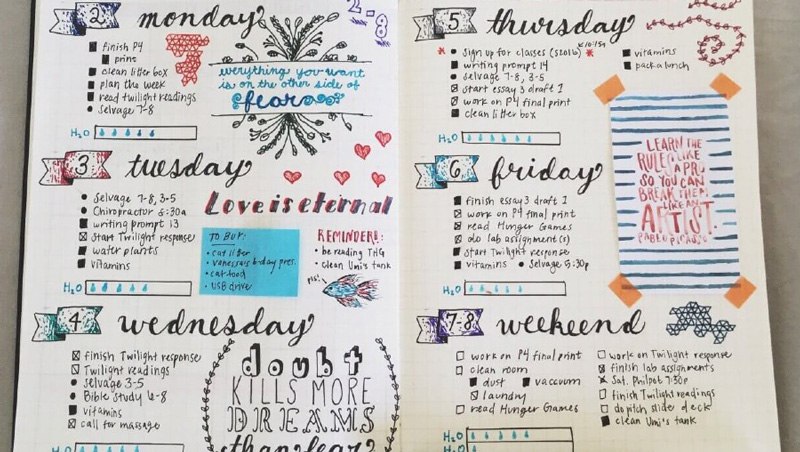 2 monday
2-8
finish P4
print
clean litter box
plan the week
read twilight readings
selvage 7-8
H₂O
everything you want
is on the other side of
fear
3 tuesday
Selvage 7-8, 3-5
Chiropractor 8:30a
writing prompt 13
start Twilight response
water plants
vitamins
H₂O
Love is eternal
TO BUY:
cat litter
vanessa's b-day pres.
cat food
USB drive
REMINDER!:
be reading THG
clean Umi's tank
4 wednesday
finish Twilight response
Twilight readings
selvage 3-5
Bible study 6-8
vitamins
call for massage
H₂O
doubt
KILLS MORE
DREAMS
than fear?
5 thursday
sign up for classes (S2016)
writing prompt 14
selvage 7-8, 3-5
start essay 3 draft 1
work on P4 final print
clean litter box
vitamins
pack a lunch
H₂O
LEARN THE
RULES LIKE
A PRO
SO YOU CAN
BREAK THEM
LIKE AN
ARTIST.
PABLO PICASSO
6 friday
finish essay 3 draft 1
work on P4 final print
read Hunger Games
do lab assignment(s)
start Twilight response
vitamins
Selvage 5:30p
H₂O
7-8 weekend
work on P4 final print
clean room
dust
vaccuum
laundry
read Hunger Games
work on Twilight response
finish lab assignments
Sat. Philpot 7:30p
finish Twilight readings
do pitch slide deck
clean Umi's tank
H₂O
H₂O